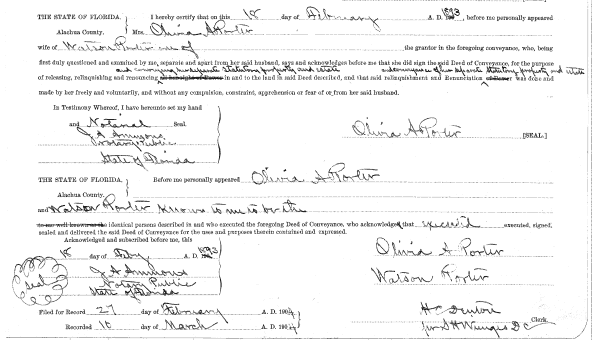 THE STATE OF FLORIDA. } I hereby certify that on this 18 day of February A. D. 1893, before me personally appeared
Alachua County. } Mrs. Olivia A Porter
wife of Watson Porter one of the grantor in the foregoing conveyance, who, being
first duly questioned and examined by me, separate and apart from her said husband, says and acknowledges before me that she did sign the said Deed of Conveyance, for the purpose
and conveying her separate statutory property and estate and conveyance of her separate statutory property and estate
of releasing, relinquishing and renouncing in and to the land in said Deed described, and that said relinquishment and Renunciation was done and
made by her freely and voluntarily, and without any compulsion, constraint, apprehension or fear of or from her said husband.
In Testimony Whereof, I have hereunto set my hand
and Notarial Seal.
Olivia A Porter [SEAL.]
Notary Public
State of Florida
THE STATE OF FLORIDA. } Before me personally appeared Olivia A Porter
Alachua County. }
and Watson Porter known to me to be the
to me well known as the identical persons described in and who executed the foregoing Deed of Conveyance, who acknowledged that executed, signed,
sealed and delivered the said Deed of Conveyance for the uses and purposes therein contained and expressed.
Acknowledged and subscribed before me, this
18 day of Feby A. D. 1893
Olivia A. Porter
Watson Porter
Seal
Notary Public
State of Florida
Filed for Record 27 day of February A. D. 1904
H C Denton Clerk.
Recorded 10 day of March A. D. 1904
D C